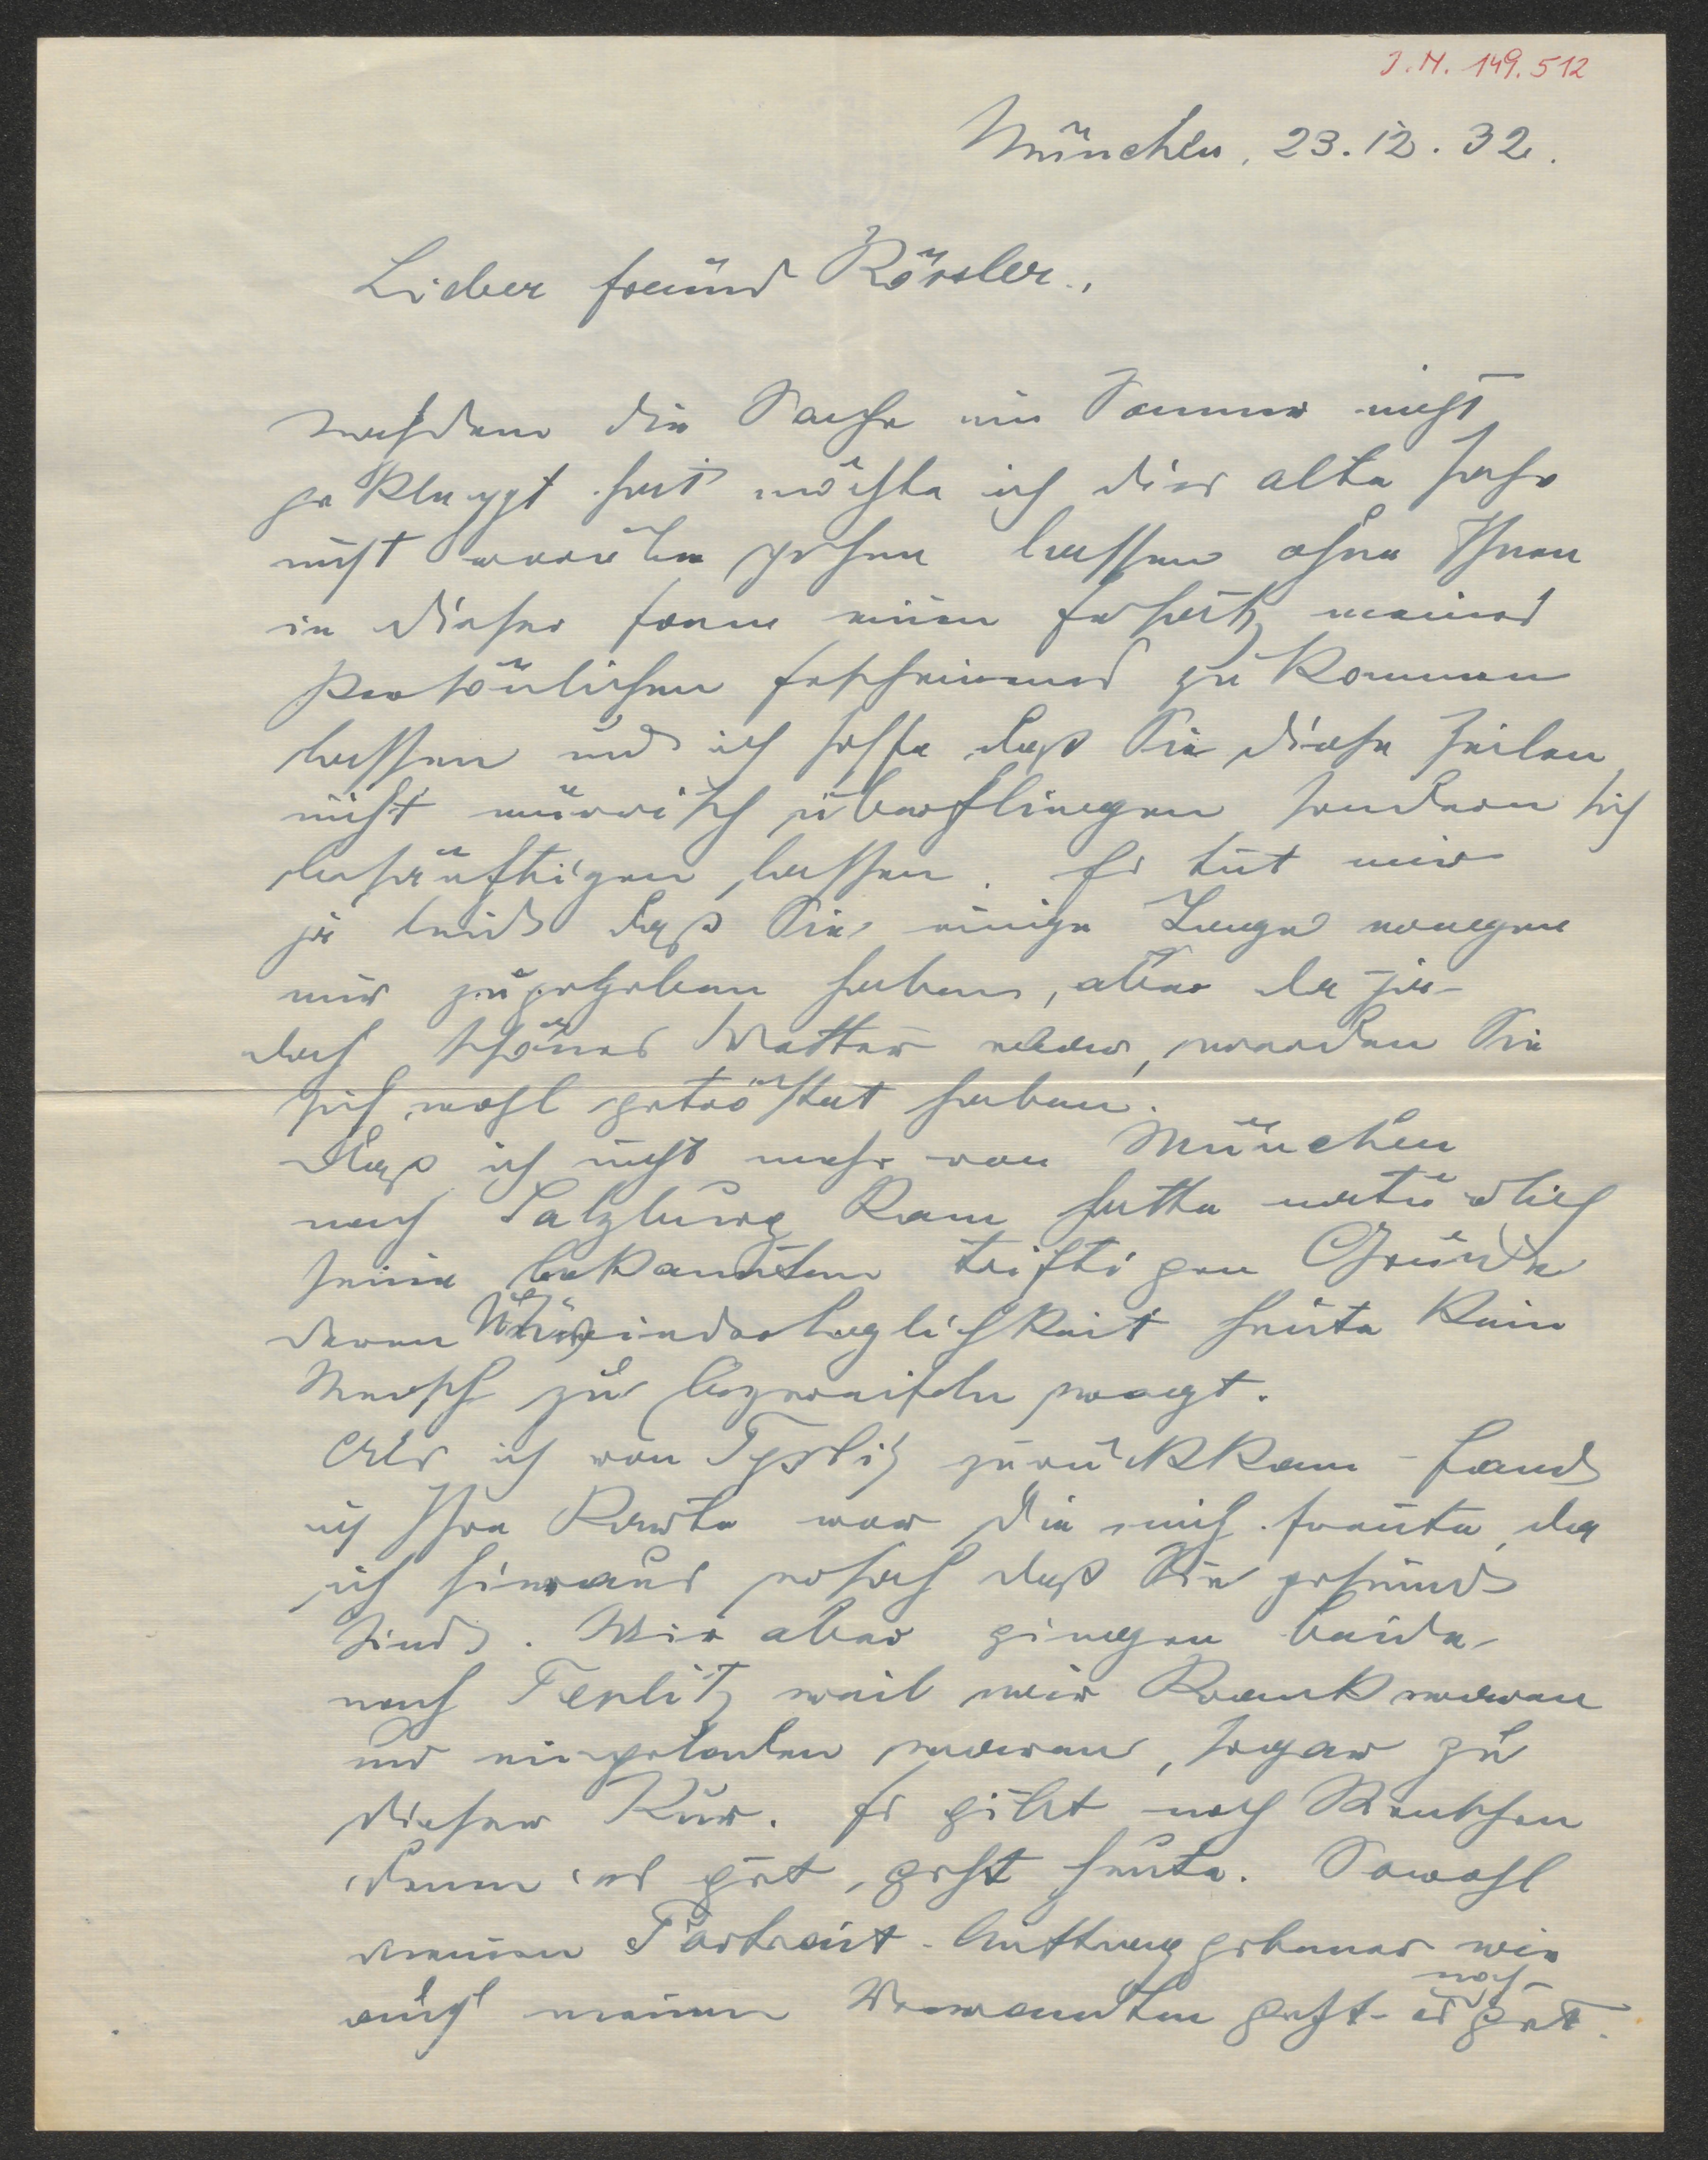 J.N. 149.512
München, 23.12.32.
Lieber Freund Rössler,
nachdem die Sache im Sommer nicht
geklappt hat möchte ich dies alte Jahr
nicht vorüber gehen lassen ohne Ihnen
in dieser Form einen Ersatz meines
persönlichen Erscheinens zu kommen
lassen und ich hoffe daß Sie diese Zeilen
nicht mürrisch überfliegen sondern sich
besänftigen lassen. Es tut mir
ja leid daß Sie einige Tage wegen
mir zugegeben haben, aber da ja
doch schönes Wetter war, werden Sie
sich wohl getröstet haben.
Daß ich nicht mehr von München
nach Salzburg kam hatte natürlich
seine bekannten triftigen Gründe
deren Unwiederleglichkeit heute kein
Mensch zu bezweifeln wagt.
Als ich von Teplitz zurückkam fand
ich Ihre Karte vor die mich freute, da
ich hieraus ersah daß Sie gesund
sind. Wir aber gingen beide
nach Teplitz weil wir krank waren
und eingeladen waren, sogar zu
dieser Kur. Es gibt noch Menschen
denen es gut geht heute. Sowohl
meinen Portrait-Auftraggebener wie
auch meinen Verwandten geht es noch gut.